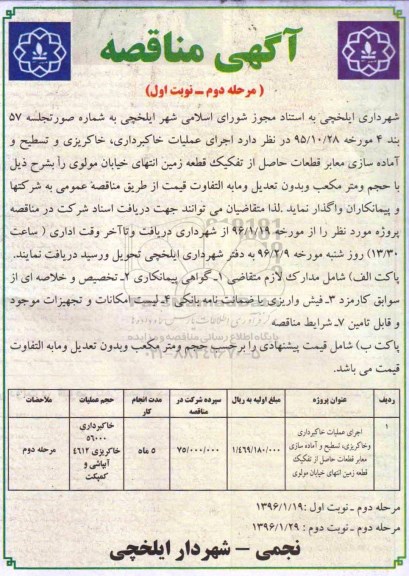 آگهی مناقصه
( مرحله دوم ــ نوبت اول)
شهرداری ایلخچی به استناد مجوز شورای اسلامی شهر ایلخچی به شماره صورتجلسه ۵۷
بند ۴ مورخه ۹۵/۱۰/۲۸ در نظر دارد اجرای عملیات خاکبرداری، خاکریزی و تسطیح و
آماده سازی معابر قطعات حاصل از تفکیک قطعه زمین انتهای خیابان مولوی را بشرح ذیل
با حجم ومتر مکعب وبدون تعدیل ومابه التفاوت قیمت از طریق مناقصه عمومی به شرکتها
و پیمانکاران واگذار نماید .لذا متقاضیان می توانند جهت دریافت اسناد شرکت در مناقصه
پروژه مورد نظر را از مورخه ۹۶/۱/۱۹ از شهرداری دریافت وتاآخر وقت اداری ( ساعت
۱۳/۳۰) روز شنبه مورخه ۹۶/۲/۹ به دفتر شهرداری ایلخچی تحویل ورسید دریافت نمایند.
پاکت الف) شامل مدارک لازم متقاضی ۱ـ گواهی پیمانکاری ۲ـ تخصیص و خلاصه ای از
سوابق کارمزد ۳ـ فیش واریزی یا ضمانت نامه بانکی ۴ـ لیست امکانات و تجهیزات موجود
و قابل تامین ۷ـ شرایط مناقصه
پاکت ب) شامل قیمت پیشنهادی را برحسب حجم ومتر مکعب وبدون تعدیل ومابه التفاوت
قیمت می باشد.
ردیف عنوان پروژه مبلغ اولیه به ریال سپرده شرکت در مناقصه مدت انجام کار حجم عملیات ملاحضات
۱ اجرای عملیات خاکبرداری وخاکریزی، تسطیح و آماده سازی معابر قطعات حاصل از تفکیک قطعه زمین انتهای خیابان مولوی ۱/۴۶۹/۱۸۰/۰۰۰ ۷۵/۰۰۰/۰۰۰ ۵ ماه خاکبرداری ۵۶۰۰۰ خاکریزی ۴۶۱۲ آبپاشی و کمپکت مرحله دوم
مرحله دوم ـ نوبت اول :۱۳۹۶/۱/۱۹
مرحله دوم ـ نوبت دوم : ۱۳۹۶/۱/۲۹
نجمی – شهردار ایلخچی